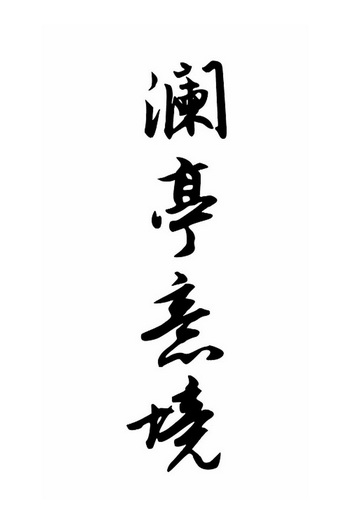 澜亭意境